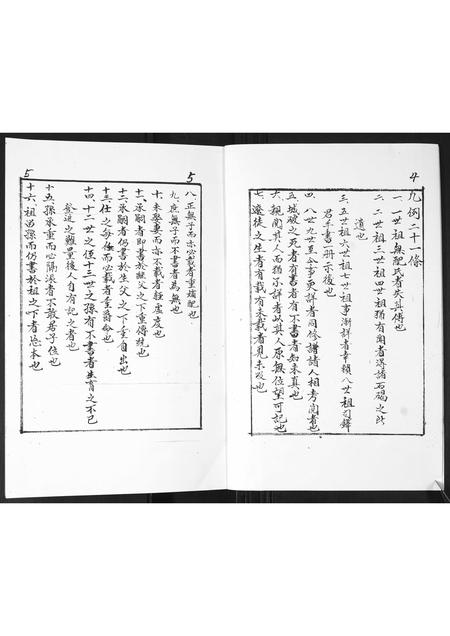 4
凡例二十一條
一、一世祖無配氏者失其傳也
二、二世祖三世祖四世祖猶有聞者遵諸石碣之所
道也
三、五世祖六世祖七世祖事漸詳者幸賴八世祖
君手書一冊示後也
四、八世九世至今事更詳者同修譜諸人相考閱者也
五、城破之死者有書者有不書者知未真也
六、親閱其人而猶不詳者以其人原無位望可記也
七、遠徒之生者有載有未載者見未及也
5
5
八、正無子而亦必載者重嫡配也
九、庶無子而不書者為無也
十、未娶妻而亦不載者輕度也
十一、承嗣者即書於嗣父之下重傳統也
十二、承嗣者仍書於生父之下重自出也
十三、仕之每任而必載者重爵命也
十四、十二世之侄十三世之孫有不書者生育之不已
登進之難量後人自有記之者也
十五、孫承重而必隔派者不敢君子位也
十六、祖為孫而仍書於祖之下者忘本也